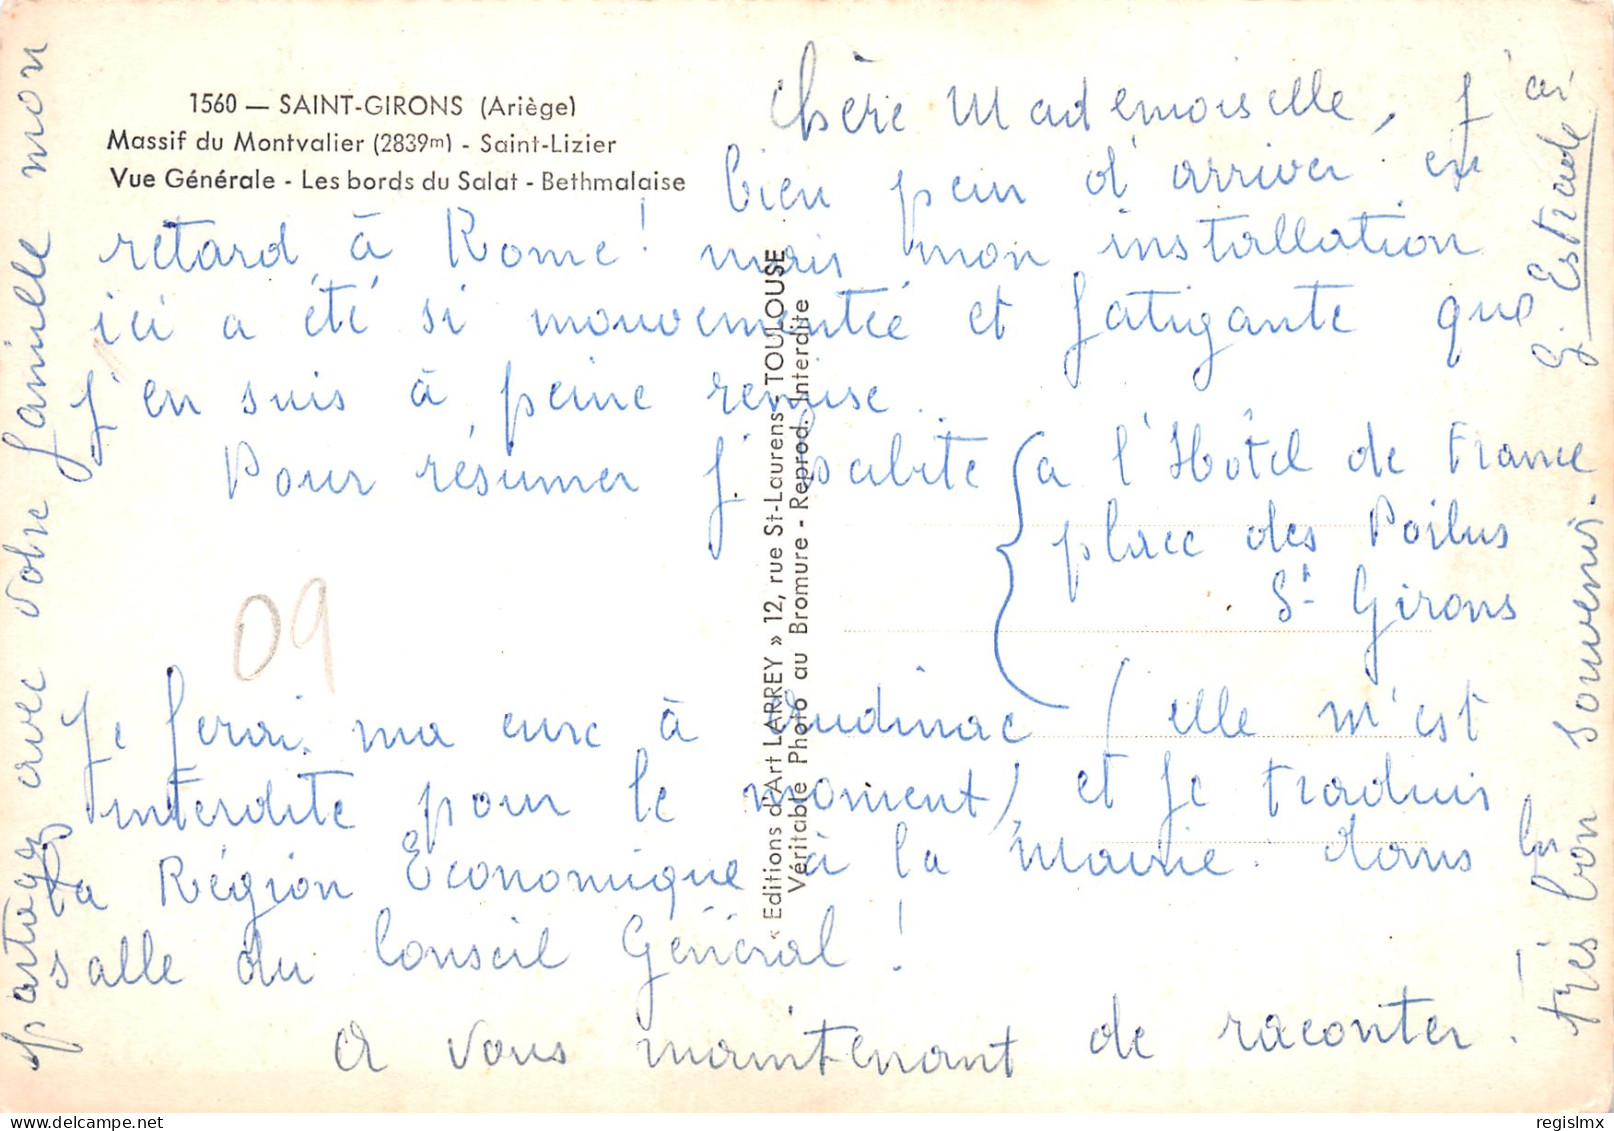 1560 — SAINT-GIRONS (Ariège)
Massif du Montvalier (2839m) - Saint-Lizier
Vue Générale - Les bords du Salat - Bethmalaise
Chère Mademoiselle, j'ai
bien peur d'arriver en
retard à Rome! mais mon installation
ici a été si mouvementée et fatigante que
j'en suis à peine remise.
Pour résumer j'habite à l'Hôtel de France
place des Poilus
St Girons
Je ferai ma cure à Audinac (elle m'est
interdite pour le moment) et je traduis
la Région Economique à la Mairie dans la
salle du Conseil Général!
A vous maintenant de raconter.
partagez avec votre famille mon
très bon souvenir.
G. Estrade
« Editions d'Art LARREY » 12, rue St-Laurens - TOULOUSE
Véritable Photo au Bromure - Reprod. Interdite
09
regislmx